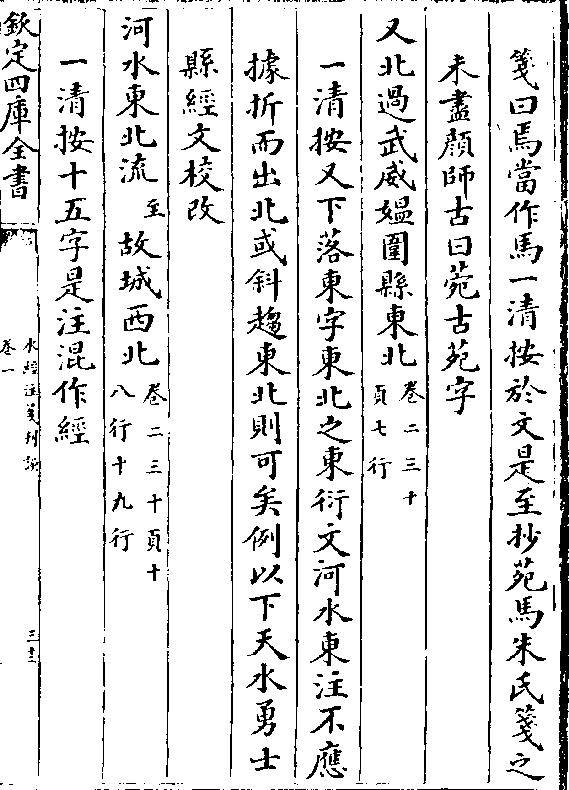 箋曰焉當作馬一清按於文是至抄苑馬朱氏箋之
未盡顔師古曰菀古苑字
又北過武威媪圍縣東北卷二三十頁七行
一清按又下落東字東北之東衍文河水東注不應
據折而出北或斜趨東北則可矣例以下天水勇士
縣經文校改
河水東北流至故城西北卷二三十頁十八行十九行
一清按十五字是注混作經
欽定四庫全書
水經注箋刋誤
卷一